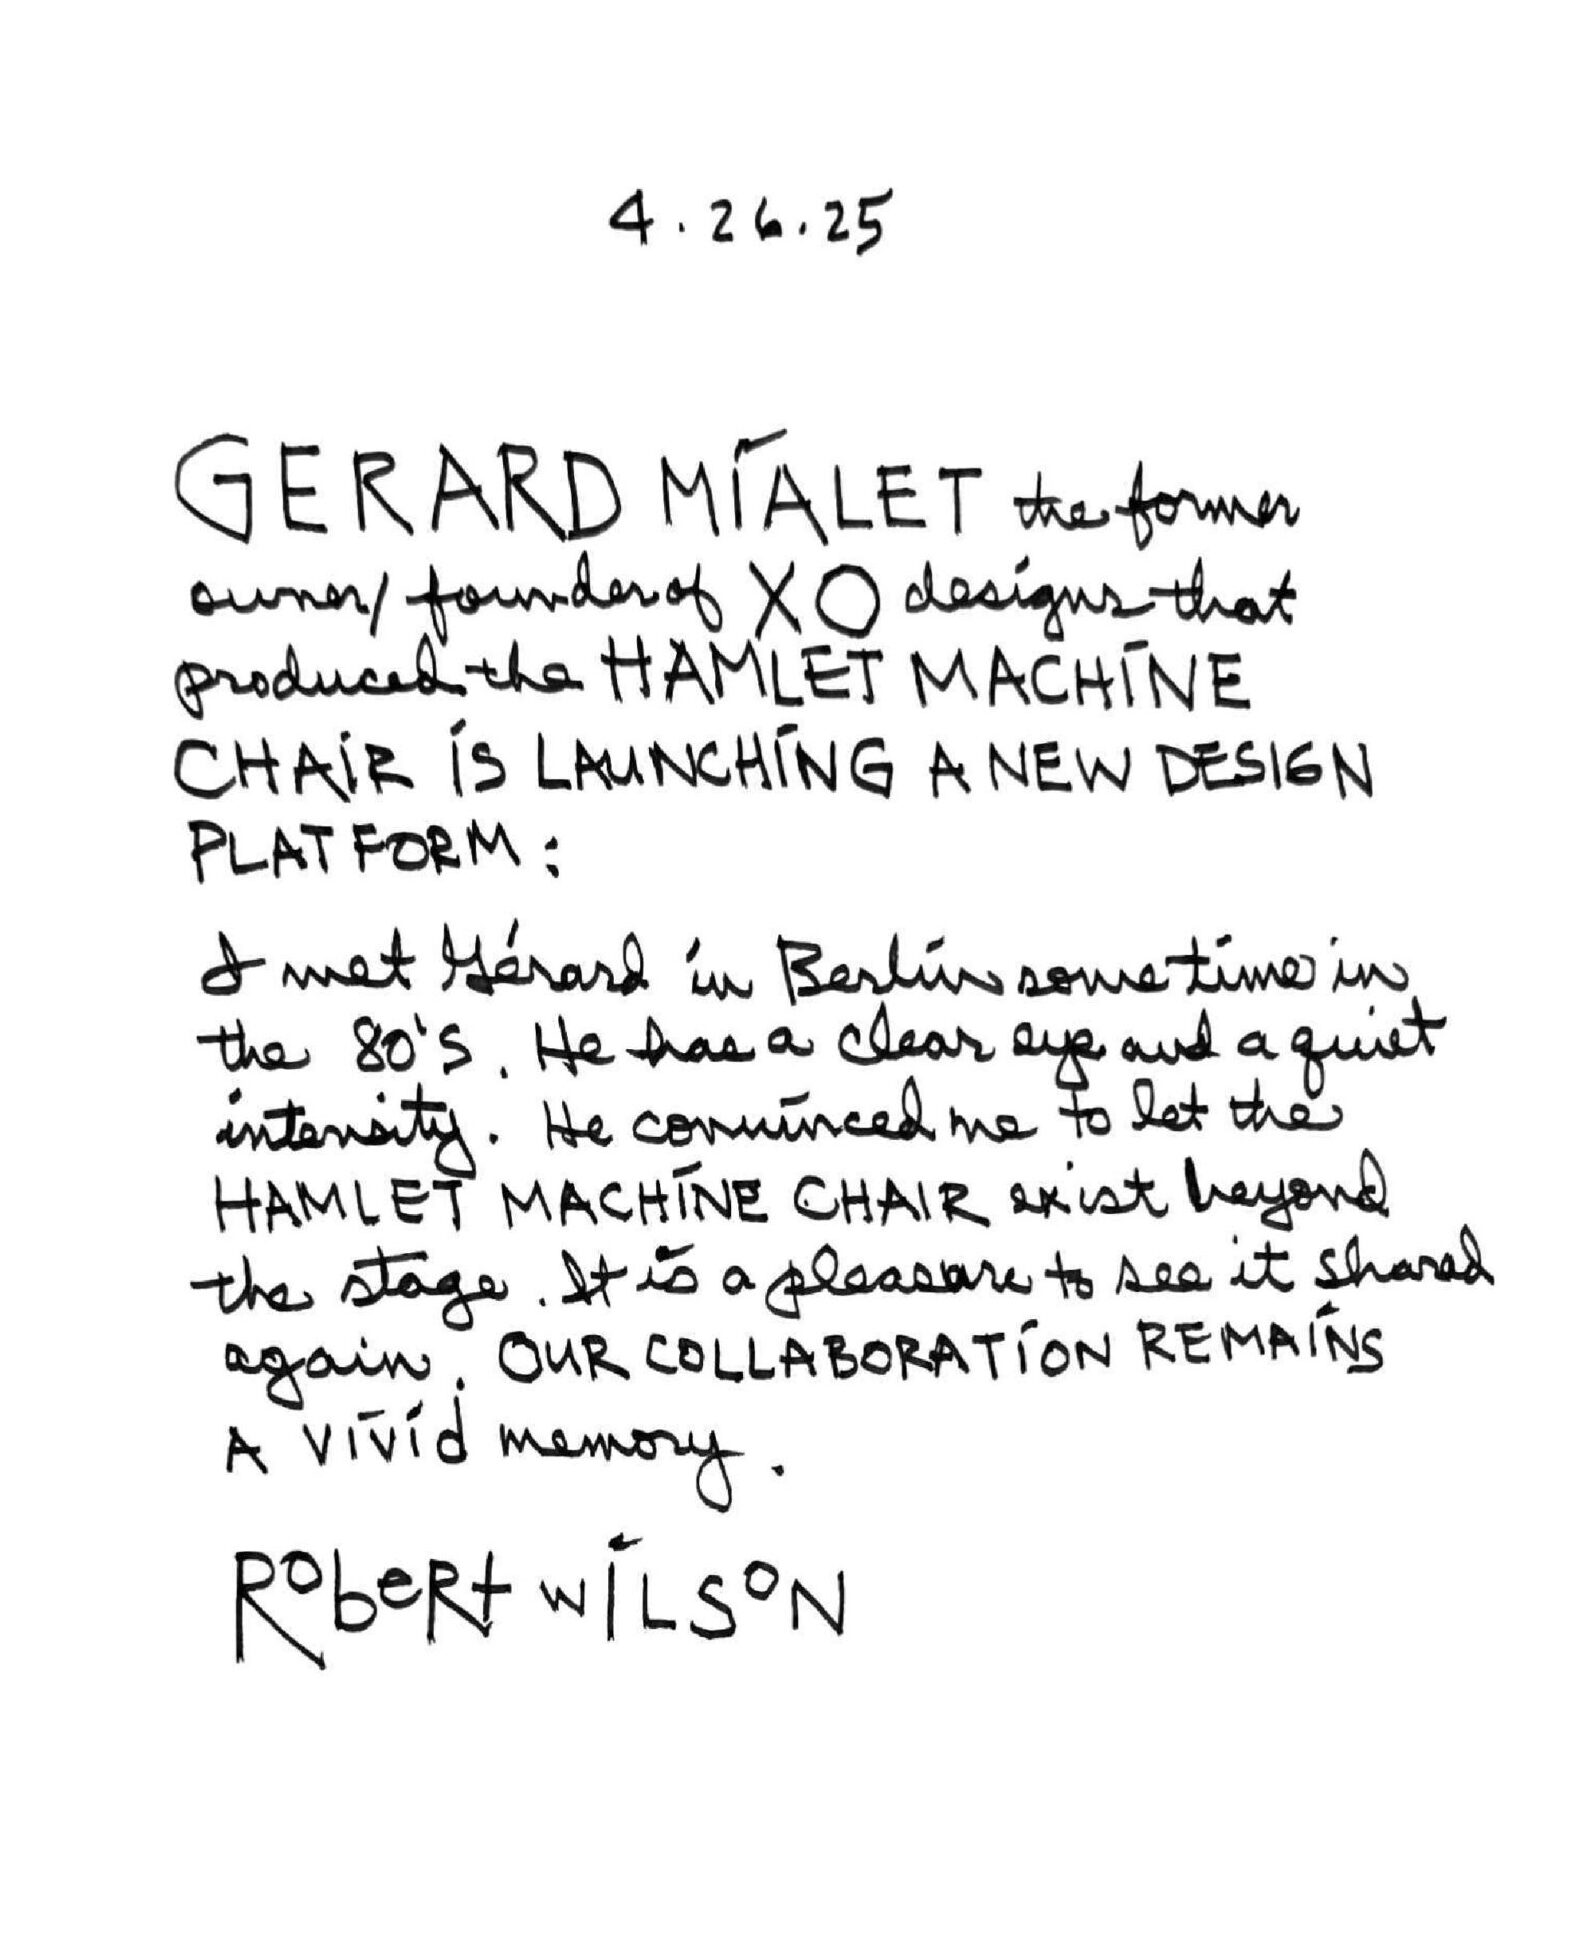 4.26.25
GERARD MIALET the former
owner/founder of XO designs that
produced the HAMLET MACHINE
CHAIR IS LAUNCHING A NEW DESIGN
PLATFORM:
I met Gérard in Berlin sometime in
the 80's. He has a clear eye and a quiet
intensity. He convinced me to let the
HAMLET MACHINE CHAIR exist beyond
the stage. It is a pleasure to see it shared
again. OUR COLLABORATION REMAINS
A vivid memory.
RobeRt wILSoN